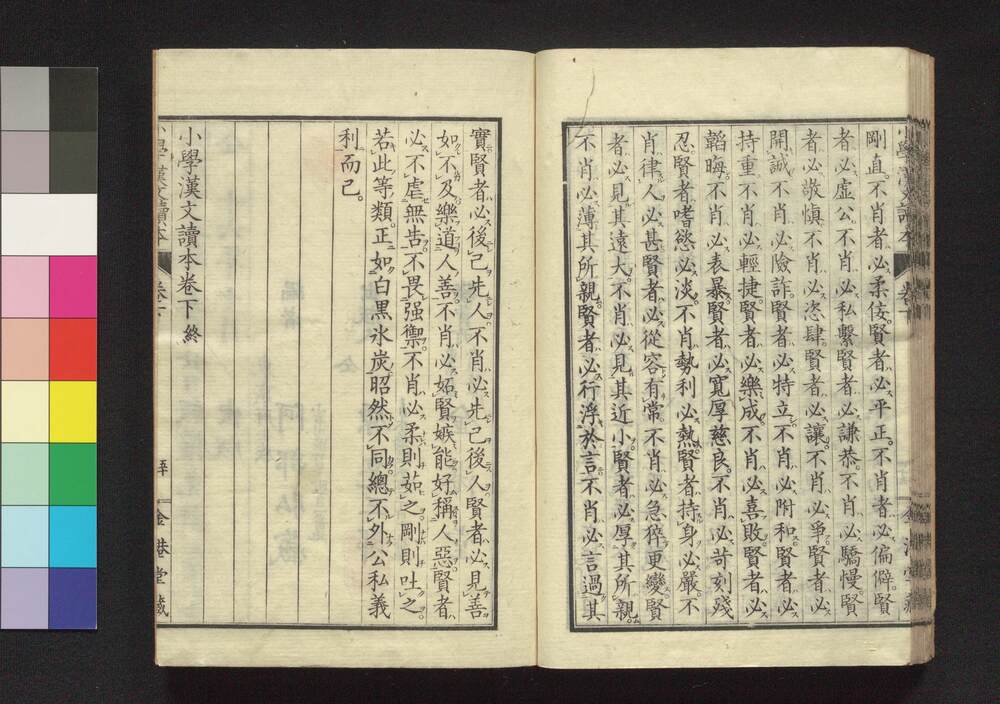 剛直。不肖者必柔佞賢者必平正。不肖者必偏僻。賢
者必虛公不肖必私繫賢者必謙恭。不肖必驕慢賢
者必敬愼不肖必恣肆賢者必讓。不肖必爭賢者必
開誠不肖必險詐賢者必特立不肖必附和賢者必
持重不肖必輕捷賢者必樂成。不肖必喜敗賢者必
韜晦。不肖必表暴賢者必寬厚慈良。不肖必苛刻殘
忍。賢者嗜慾必淡。不肖勢利必熱。賢者持身必嚴。不
肖律人必甚賢者必從容有常不肖必急猝更變賢
者必見其遠大。不肖必見其近小。賢者必厚其所親。
不肖必薄其所親。賢者必行浮於言。不肖必言過其
實賢者必後己先人不肖必先己後人賢者必見善
如不及樂道人善不肖必妬賢嫉能好稱人惡賢者
必不虐無告不畏强禦不肖必柔則茹之剛則吐之。
若此等類。正如白黑氷炭昭然不同總不外公私義
利而已。
小學漢文讀本卷下 終
小學漢文讀本
金港堂藏